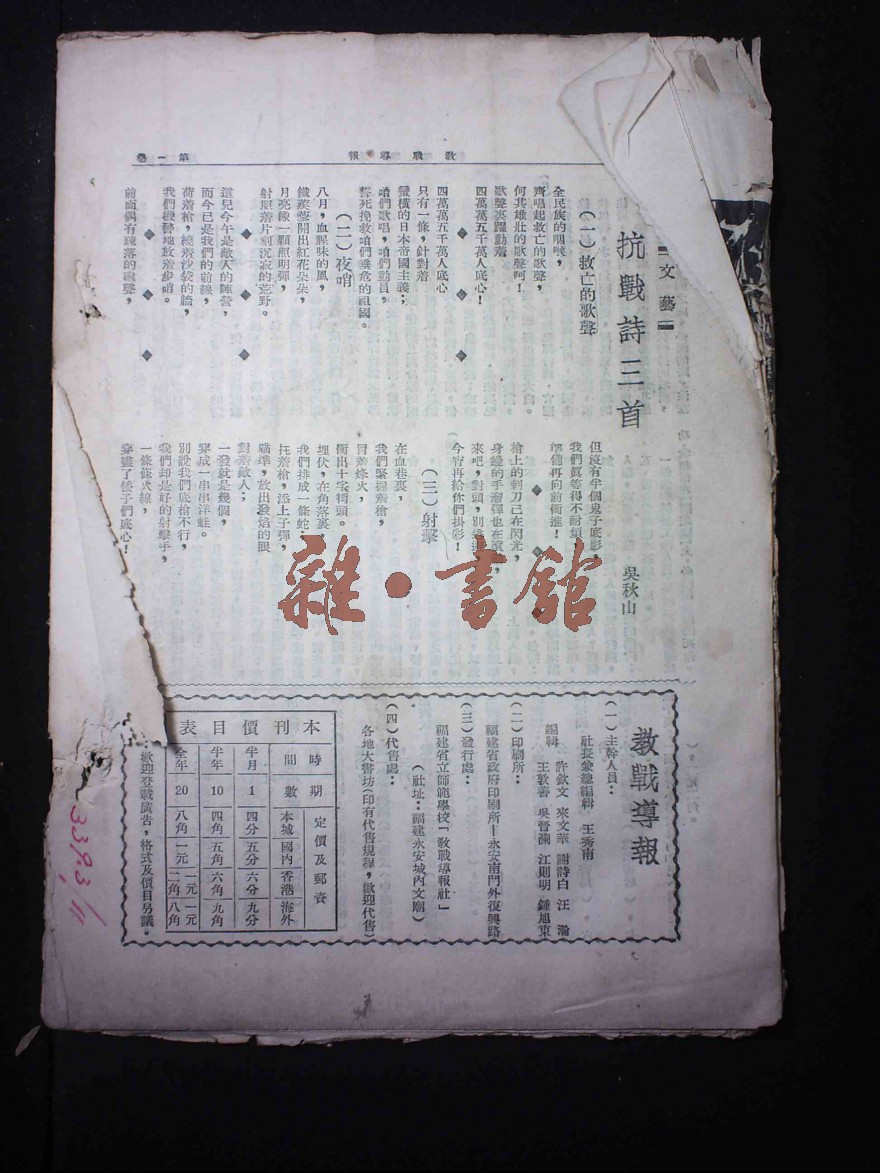 教戰導報
第一卷
文藝
抗戰詩三首
吳秋山
(一)救亡的歌聲
全民族的咽喉,
齊唱起救亡的歌聲,
何其雄壯的歌聲啊!
歌聲裏躍動着
四萬萬五千萬人底心!
◆ ◆ ◆
四萬萬五千萬人底心
只有一條,針對着
蠻橫的日本帝國主義;
咱們歌唱,咱們動員,
誓死挽救咱們垂危的祖國。
(二)夜哨
八月,血腥味的風,
鐵蒺藜開出紅花朵朵,
月亮像一顆照明彈,
射照着片刻沉寂的荒野。
◆ ◆ ◆
這兒今午是敵人的陣營,
而今已是我們的前線,
荷着槍,繞着沙袋的牆,
我們機警地放着步哨。
◆ ◆ ◆
前面偶有疎落的砲聲,
但沒有半個鬼子底影,
我們眞等得不耐煩,
準備再向前衝進!
◆ ◆ ◆
槍上的刺刀已在閃光,
身邊的手溜彈也在
來吧,對頭,別
今宵再給你們掛彩!
(三)射擊
在血巷裏,
我們緊握着槍,
冒着烽火,
衝出十家街頭。
埋伏,在角落裏,
我們排成一條蛇;
托着槍,添上子彈,
瞄準,放出發焰的眼
對着敵人;
一發就是幾個,
穿成一串串洋蛙。
別說我們底槍不行,
我們却是好的射擊手,
一條條火線,
穿盡了鬼子們底心!
雜·書館
教戰導報
(一)主幹人員:
社長兼總編輯 王秀南
編輯 許欽文 來文華 謝詩白 汪瀚
王敦善 吳晉瀾 江則明 鍾旭東
(二)印刷所:
福建省政府印刷所—永安南門外復興路
(三)發行處:
福建省立師範學校「教戰導報社」
(社址:福建永安城內文廟)
(四)代售處:
各地大書坊(印有代售規程,歡迎代售)
本刊價目表
時期 期數 定價及郵費
本城 國內 香港 海外
半月 1 四分 五分 六分 九分
半年 10 四角 五角 六角 九角
全年 20 八角 一元 一元二角 一元八角
歡迎登載廣告,格式及價目另議。
3393/11